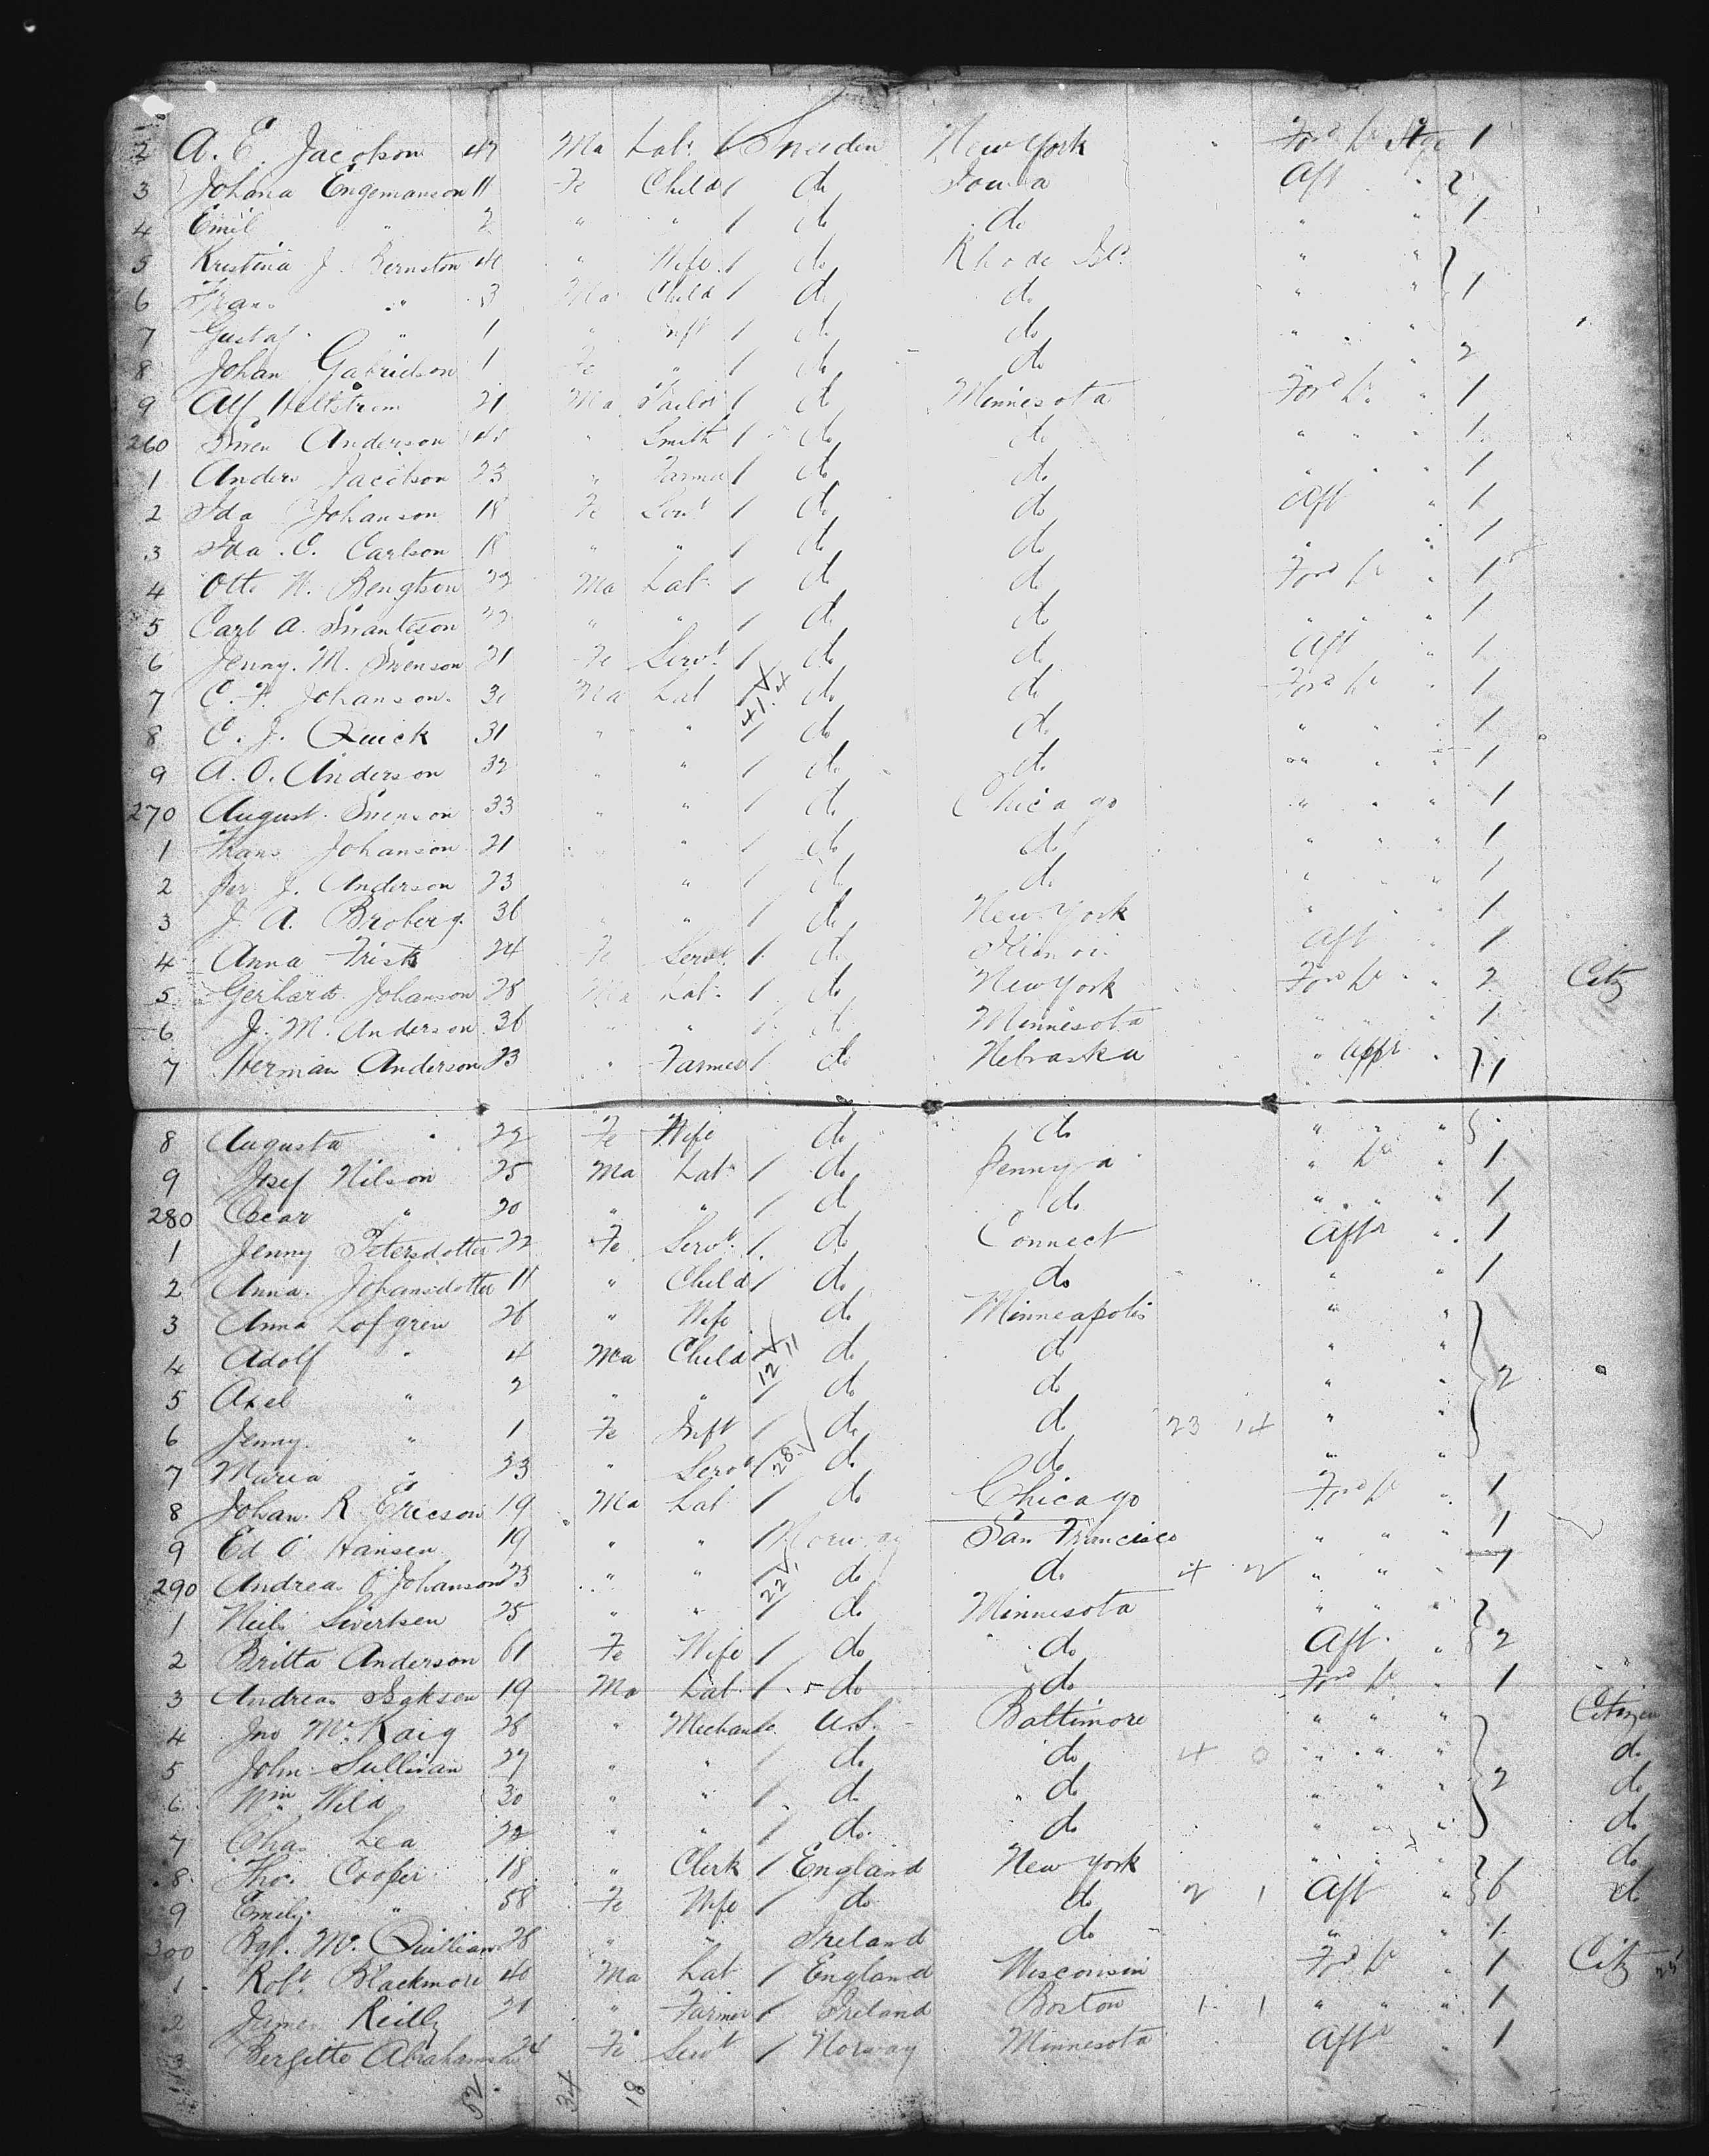 2 A. E. Jacobson 47 Ma Lab. 1 Sweden New York Ford Lr Stge 1
3 Johana Engemanson 11 Fe Child 1 do Iowa Aft " 2
4 Emil " 2 " " 1 do do " " 1
5 Kristina J. Bernston 40 " Wife 1 do Rhode Isd " "
6 Frans " 3 Ma Child 1 do do " " 1
7 Gustaf " 1 " Inft 1 do do " "
8 Johan Gabrielson 1 Fe " 1 do do " 2
9 Alf Hellstrom 21 Ma Tailor 1 do Minnesota Ford Lr " 1
260 Swen Anderson 45 " Smith 1 do do " " " 1
1 Anders Jacobson 23 " Farmer 1 do do " " " 1
2 Ida Johanson 18 Fe Servt 1 do do Aft " 1
3 Ida C. Carlson 18 " " 1 do do " " 1
4 Otto W. Bengtson 22 Ma Lab. 1 do do Ford Lr " 1
5 Carl A. Swanteson 22 " " 1 do do " " " 1
6 Jenny M. Swenson 21 Fe Servt 1 do do Aft " 1
7 C. F. Johanson 30 Ma Lab 1 do do Ford Lr " 1
8 C. J. Quick 31 " " 1 do do " " " 1
9 A. O. Anderson 32 " " 1 do do " " " 1
270 August Swenson 33 " " 1 do Chicago " " " 1
1 Frans Johanson 21 " " 1 do do " " " 1
2 Per J. Anderson 23 " 1 do do " " " 1
3 J. A. Broberg 36 " " 1 do New York " " 1
4 Anna Frisk 24 Fe Servt 1 do Illinois Aft " 1
5 Gerhard Johanson 28 Ma Lab. 1 do New York Ford Lr " 2 Citz
6 J. M. Anderson 36 " " 1 do Minnesota " " " 1
7 Herman Anderson 23 " Farmer 1 do Nebraska " Aftr " 1
8 Augusta " 22 Fe Wife do do " " "
9 Josef Nilson 25 Ma Lab. 1 do Pennya " Lr " 1
280 Oscar " 20 " " 1 do do " " " 1
1 Jenny Petersdotter 22 Fe Servt 1 do Connect Aftr " 1
2 Anna Johansdotter 11 " Child 1 do do " " 1
3 Anna Lofgren 26 " Wife do Minneapolis " "
4 Adolf " 4 Ma Child 12 11 do do " "
5 Axel " 2 " " 1 do do " " 2
6 Jenny " 1 Fe Inft 1 do do 23 14 " "
7 Maria " 33 " Servt 1 28 do do " "
8 Johan R Ericson 19 Ma Lab 1 do Chicago Ford Lr " 1
9 Ed O Hansen 19 " " 1 Norway San Francisco " " " 1
290 Andrea O Johanson 23 " " 1 22 do do 4 2 " " " 1
1 Neils Sivertsen 25 " " 1 do Minnesota " " "
2 Britta Anderson 61 Fe Wife 1 do do Aft " 2
3 Andreas Isaksen 19 Ma Lab 1 do do Ford Lr " 1
4 Jno McKaig 28 " Mechanic U.S. Baltimore " " " Citizen
5 John Sullivan 27 " " 1 do do 4 0 " " " do
6 Wm Wild 30 " " 1 do do " " " 2 do
7 Chas Lea 22 " " 1 do do " " " do
8 Thos Cooper 18 " Clerk 1 England New York " " " do
9 Emily " 58 Fe Wife 1 do do 2 1 Aft " 6 do
300 Bgt. McQuillian 28 " " Ireland do " " 1
1 Robt. Blackmore 40 Ma Lab 1 England Wisconsin Ford Lr " 1 Citz 25
2 James Reilly 21 " Farmer 1 Ireland Boston 1 1 " " " 1
3 Bergitte 24 Fe Servt 1 Norway Minnesota Aftr " 1
52 34 18